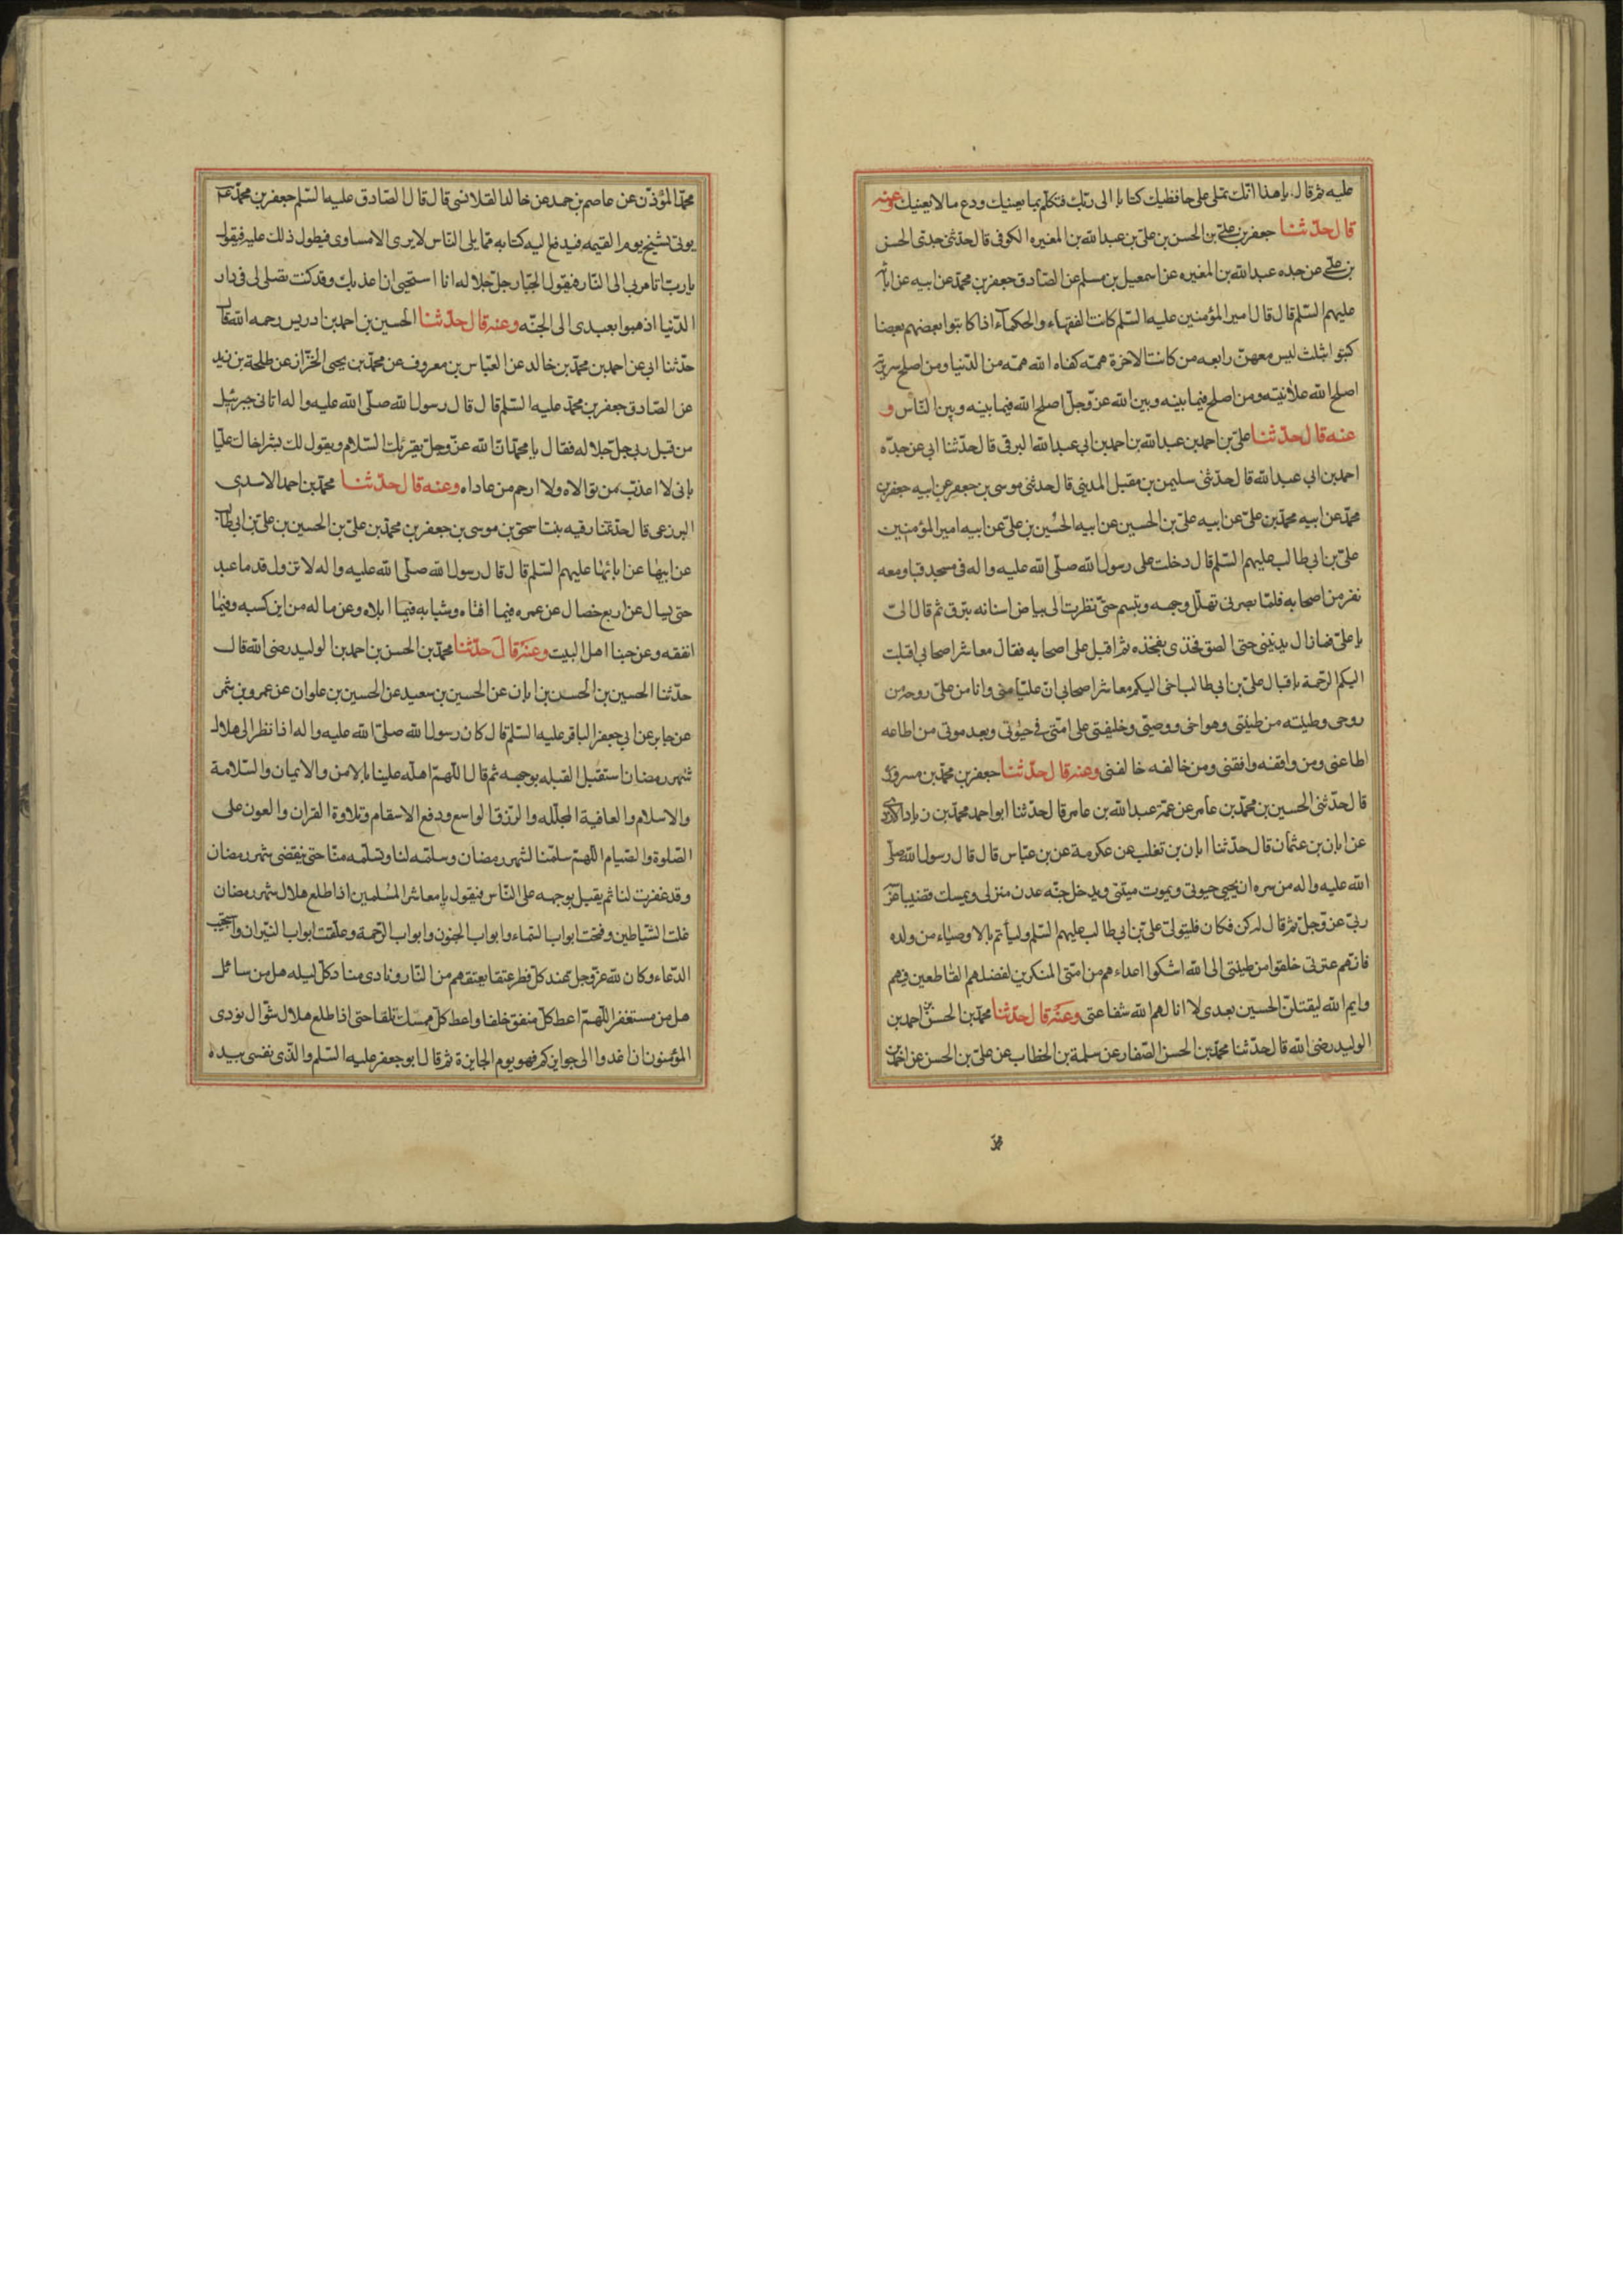 عليه ثم قال يا هذا انك تملى على حافظيك كتابا الى ربك فتكلم بما يعنيك ودع ما لا يعنيك وعنه
قال حدثنا جعفر بن علي بن الحسن بن علي بن عبد الله بن المغيره الكوفى قال حدثنى جدى الحسن
بن على عن جده عبد الله بن المغيره عن اسمعيل بن مسلم عن الصادق جعفر بن محمد عن ابيه عن ابائه
عليهم السلم قال قال امير المؤمنين عليه السلم كانت الفقهاء والحكماء اذا كاتبوا بعضهم بعضا
كتبوا بثلث ليس معهن رابعه من كانت الاخرة همه كفاه الله همه من الدنيا ومن اصلح سريرته
اصلح الله علانيته ومن اصلح فيما بينه وبين الله عز وجل اصلح الله فيما بينه وبين الناس و
عنه قال حدثنا على بن احمد بن عبد الله بن احمد بن ابى عبد الله البرقى قال حدثنا ابى عن جده
احمد بن ابى عبد الله قال حدثنى سليمن بن مقبل المدينى قال حدثنى موسى بن جعفر عن ابيه جعفر بن
محمد عن ابيه محمد بن على عن ابيه على بن الحسين عن ابيه الحسين بن على عن ابيه امير المؤمنين
على بن ابى طالب عليهم السلم قال دخلت على رسول الله صلى الله عليه واله فى مسجد قبا ومعه
نفر من اصحابه فلما بصر بى تهلل وجهه وتبسم حتى نظرت الى بياض اسنانه يبرق ثم قال الى
يا على فما زال يدنينى حتى الصق فخذى بفخذه ثم اقبل على اصحابه فقال معاشر اصحابى اقبلت
اليكم الرحمة باقبال على بن ابى طالب اخى اليكم معاشر اصحابى ان عليا منى وانا من على روحه من
روحى وطينته من طينتى وهو اخى ووصيى وخليفتى على امتى فى حيوتى وبعد موتى من اطاعه
اطاعنى ومن وافقه وافقنى ومن خالفه خالفنى وعنه قال حدثنا جعفر بن محمد بن مسرور
قال حدثنى الحسين بن محمد بن عامر عن عمه عبد الله بن عامر قال حدثنا ابو احمد محمد بن زياد الازدى
عن ابان بن عثمان قال حدثنا ابان بن تغلب عن عكرمة عن بن عباس قال قال رسول الله صلى
الله عليه واله من سره ان يحيى حيوتى ويموت ميتتى ويدخل جنه عدن منزلى ويمسك قضيبا غرسه
ربى عز وجل ثم قال له كن فكان فليتولى على بن ابى طالب عليهم السلم وليأتم بالاوصياء من ولده
فانهم عترتى خلقوا من طينتى الى الله اشكوا اعداءهم من امتى المنكرين لفضلهم القاطعين فيهم
وايم الله ليقتلن الحسين بعدى لا انالهم الله شفاعتى وعنه قال حدثنا محمد بن الحسن بن احمد بن
الوليد رضى الله قال حدثنا محمد بن الحسن الصفار عن سلمة بن الخطاب عن على بن الحسن عن احمد بن
محمد المؤذن عن عاصم بن حميد عن خالد القلانسى قال قال الصادق عليه السلم جعفر بن محمد
يوتى بشيخ يوم القيمه فيدفع اليه كتابه مما يلى الناس لا يرى الا مساوى فيطول ذلك عليه فيقول
يا رب اتامر بى الى النار فيقول الجبار جل جلاله انا استحيى ان اعذبك وقد كنت تصلى لى فى دار
الدنيا اذهبوا بعبدى الى الجنه وعنه قال حدثنا الحسين بن احمد بن ادريس رحمه الله قال
حدثنا ابى عن احمد بن محمد بن خالد عن العباس بن معروف عن محمد بن يحيى الخزاز عن طلحة بن زيد
عن الصادق جعفر بن محمد عليه السلم قال قال رسول الله صلى الله عليه واله اتانى جبرئيل
من قبل ربى جل جلاله فقال يا محمد ان الله عز وجل يقرئك السلام ويقول لك بشر اخاك عليا
بانى لا اعذب من توالاه ولا ارحم من عاداه وعنه قال حدثنا محمد بن احمد الاسدى
البرذعى قال حدثتنا رقيه بنت اسحق بن موسى بن جعفر بن محمد بن على بن الحسين بن على بن ابى طالب
عن ابيها عن ابائها عليهم السلم قال قال رسول الله صلى الله عليه واله لا تزول قدما عبد
حتى يسال عن اربع خصال عن عمره فيما افناه وشبابه فيما ابلاه وعن ماله من اين كسبه وفيما
انفقه وعن حبنا اهل البيت وعنه قال حدثنا محمد بن الحسن بن احمد بن الوليد رضى الله قال
حدثنا الحسين بن الحسن بن ابان عن الحسين بن سعيد عن الحسين بن علوان عن عمرو بن شمر
عن جابر عن ابى جعفر الباقر عليه السلم قال كان رسول الله صلى الله عليه واله اذا نظر الى هلال
شهر رمضان استقبل القبله بوجهه ثم قال اللهم اهله علينا بالامن والايمان والسلامة
والاسلام والعافية المجلله والرزق الواسع ودفع الاسقام وتلاوة القران والعون على
الصلوة والصيام اللهم سلمنا لشهر رمضان وسلمه لنا وتسلمه منا حتى ينقضى شهر رمضان
وقد غفرت لنا ثم يقبل بوجهه على الناس فيقول يا معاشر المسلمين اذا طلع هلال شهر رمضان
غلت الشياطين وفتحت ابواب السماء وابواب الجنون وابواب الرحمة وغلقت ابواب النيران واستجيب
الدعاء وكان لله عز وجل عند كل فطر عتقا يعتقهم من النار ونادى مناد كل ليله هل من سائل
هل من مستغفر اللهم اعط كل منفق خلفا واعط كل ممسك تلفا حتى اذا طلع هلال شوال نودى
المؤمنون ان اغدوا الى جوايزكم فهو يوم الجايزة ثم قال ابو جعفر عليه السلم والذى نفسى بيده